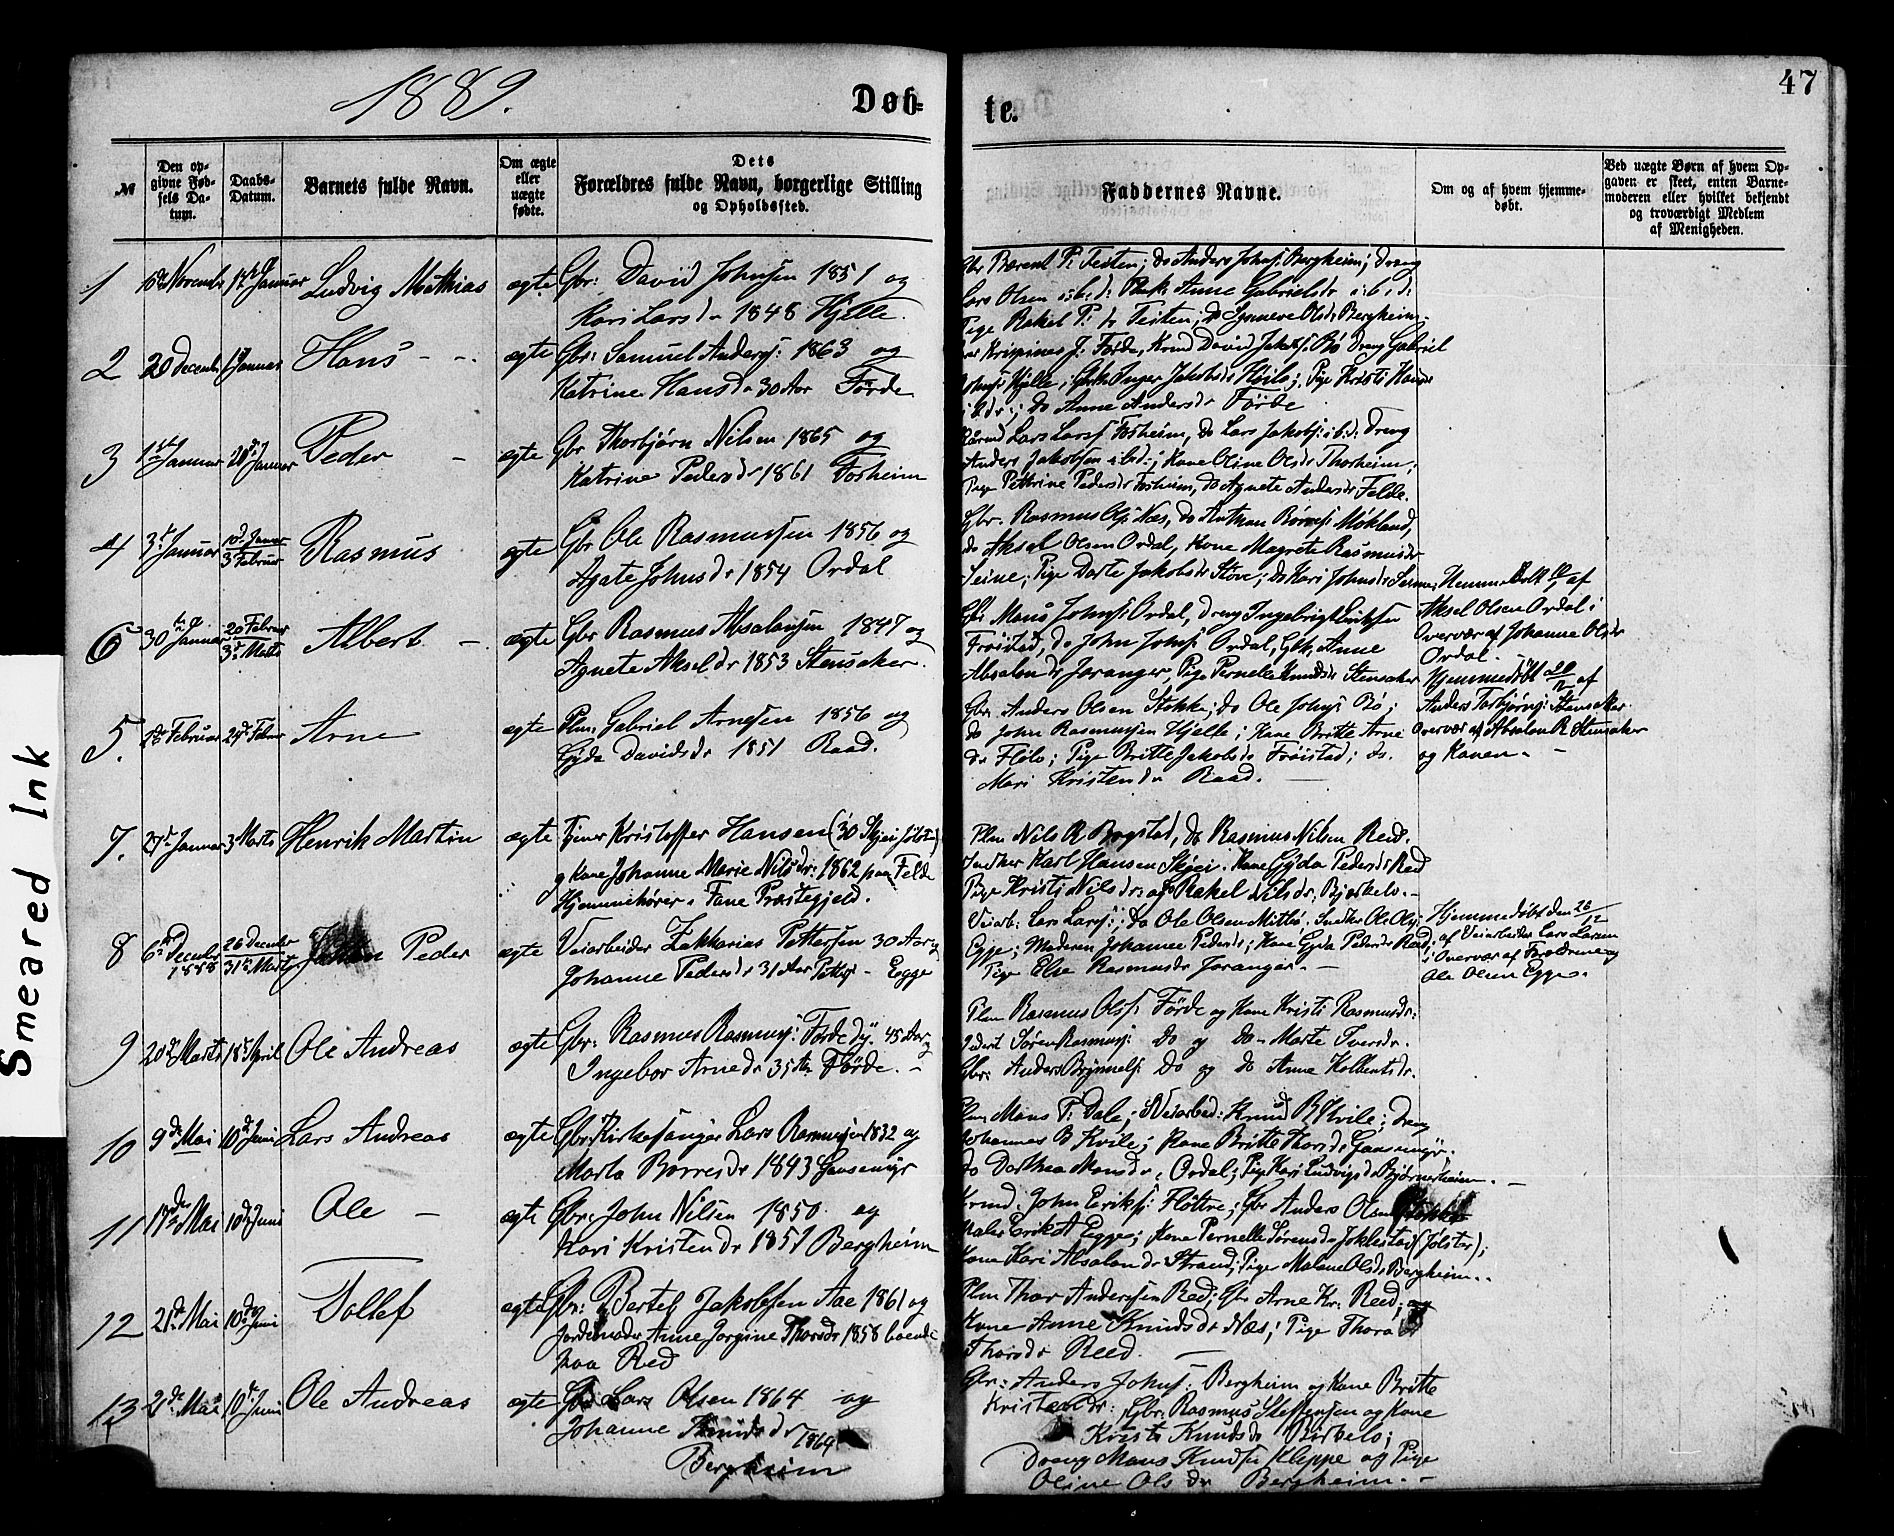 1889.
Døb-
te.
47
Smeared Ink
№
Den op-
givne Fød-
sels Da-
tum.
Daabs-
Datum.
Barnets fulde Navn.
Om ægte
eller
uægte
fødte.
Dets
Forældres fulde Navn, borgerlige Stilling
og Opholdssted.
Faddernes Navne.
Om og af hvem hjemme-
døbt.
Ved uægte Børn af hvem Op-
gaven er skeet, enten Barne-
moderen eller hvilket bekjendt
og troværdigt Medlem
af Menigheden.
1 Novembr Januar Ludvig Mathias ægte Gbr: David Johnsen 1851 og
Kari Larsdr 1848 Hjelle.
Gbr Berent P. Teiten; do Anders Johns: Bergheim; Dreng
Lars Olsen i:b:d: Anne Gabrielsdr i:b:d:
Pige Rakel P: dr Teiten; do Synneve Olsdr Bergheim.
2 20 Decembr Januar Hans - ægte Gbr: Samuel Anders: 1863 og
Katrine Hansdr 30 Aar Førde
Krispinus J. Førde, David Jakobs: Bø Dreng Gabriel
Johns: Hjelle; Inger Jakobsdr Hjelle; Pige Kristi Hans
do Anne Andersdr Førde
3 1st Januar 20de Januar Peder - ægte Gbr Thorbjørn Nilsen 1865 og
Katrine Pedersdr 1861 Fosheim
Lars Larss Fosheim, do Lars Jakobs: i:b:d: Dreng
Anders Jakobsen i:b:d:; Kone Oline Olsdr Thorheim;
Pige Pettrine Pedersdr Fosheim, do Agnete Andersdr Felde.
4 3de Januar Januar
3 Februar Rasmus ægte Gbr Ole Rasmussen 1856 og
Agate Johnsdr 1854 Ordal
Gbr. Rasmus Ols: Næs, do Anthon Børres: Mökland,
do Aksel Olsen Ordal, Kone Magrete Rasmusdr
Seime; Pige Dorte Jakobsdr Støve; do Kari Johnsdr
af
Aksel Olsen Ordal i
Overvær af Johanne Olsdr
Ordal.
6 30 Januar 20 Februar
3de Marts Albert - ægte Gbr Rasmus Absalonsen 1847 og
Agnete Akseldr 1853 Stensaker.
Mons Johns: Ordal, Dreng Ingebrigt
Frøistad, do John Johns: Ordal, Anne
Absalondr Jaranger, Pige Pernelle Knudsdr Stensaker
Hjemmedøbt 20/2 af
Anders Torbjørns: Stensaker
Overvær af Absalon R Stensaker
og Konen -
5. Februar Februar Arne ægte Plm: Gabriel Arnesen 1856 og
Gyda Davidsdr 1851 Raad.
Gbr. Anders Olsen Stokke; do Ole Johns: Bø;
do John Rasmussen Hjelle; Kone Britte Arne
dr FløLo; Pige Britte Jakobsdr Frøistad; do.
Mari Kristendr Raad.
7. 27de Januar 3 Marts Henrik Martin ægte Tjener Kristoffer Hansen (30 Skjei Jølster)
og Kone Johanne Marie Nilsdr: 1862 paa Felde
Hjemmehører i Fane Præstegjeld.
Plm Nils R Bogstad, do Rasmus Nilsen Reed.
Karl Hansen Skjei. Kone Gyda Pedersdr Red
Pige Kristi Nilsdr: og do Rakel Nilsdr; Bjørkelo. -
8 6te Decembr
1888 26 Decembr
31te Marts Peder ægte Veiarbeider Zakkarias Pettersen 30 Aar og
Johanne Pedersdr 31 Aar - Egge
Veiarb: Lars Larss:; do Ole Olsen Mitbø. Ole Ols:
Egge; Moderen Johanne Pedersdr; Kone Gyda Pedersdr Reed;
Pige Else Rasmusdr Jaranger. -
Hjemmedøbt den 26/12
af Veiarbeider Lars Larsen
i Overvær af Forældrene og
Ole Olsen Egge.
9 20de Marts 18de April Ole Andreas ægte Gbr: Rasmus Rasmus: Førde 45 Aar og
Ingebor Arnedr 35 Aar Førde. -
Plm Rasmus Ols: Førde og Kone Kristi Rasmusdr:
Søren Rasmus: do og do - Marte Iversdr.
Gbr: Anders Brynnels: do og do Anne Kolbentsdr.
10 9de Mai 10de Juni Lars Andreas ægte Gbr: Kirkesanger Lars Rasmussen 1832 og
Marta Børresdr 1843 Gaasemyr
Plm Mons P: Dale; Veiarbed: Knud B Kvile; Dreng
Johannes B Kvile; Kone Britte Thorsdr Gaasemyr.
do Dorthea Monsdr Ordal; Pige Kari Ludvigsdr Bjørnerheim. -
11 17de Mai 10de Juni Ole - ægte Gbr: John Nilsen 1850 og
Kari Kristendr 1857 Bergheim
John Eriks: Fløttre; Gbr Anders Olsen Stokke
Maler Erik A Egge; Kone Pernelle Sørensdr Joklestad (Jølster);
Kone Kari Absalondr Strand; Pige Malene Olsdr Bergheim.
12 21de Mai 10de Juni Tollef ægte Gbr: Bertel Jakobsen Aae 1861 og
Jordemoder Anne Jorgine Thorsdr 1858 boende
paa Red
Plm Thor Andersen Red; Gbr Arne Kr: Reed; og
Kone Anne Knudsdr Næs; Pige Thora
Thorsdr Reed.
13 21de Mai 10de Juni Ole Andreas ægte Gbr Lars Olsen 1864 og
Johanne 1864
Bergheim
Gbr: Anders Johns: Bergheim og Kone Britte
Kristendr: Gbr: Rasmus Steffensen og Kone
Kristi Knudsdr Birkelo;
Dreng Mons Knuds: Kleppe og Pige
Oline Olsdr Bergheim. -